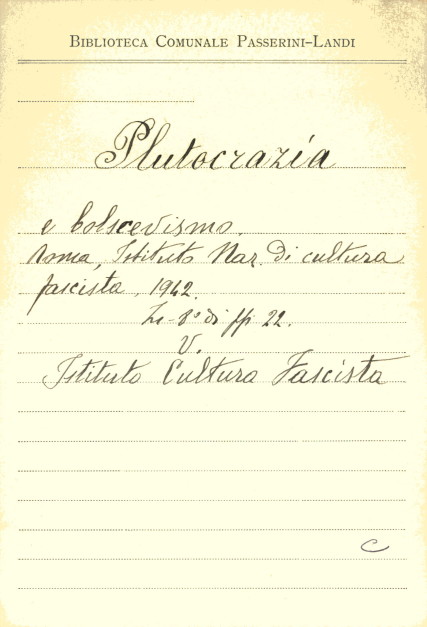 BIBLIOTECA COMUNALE PASSERINI-LANDI
Plutocrazia
e bolscevismo.
Roma, Istituto Naz. di cultura
fascista, 1942.
In-8° di pp 22.
V.
Istituto Cultura Fascista
C